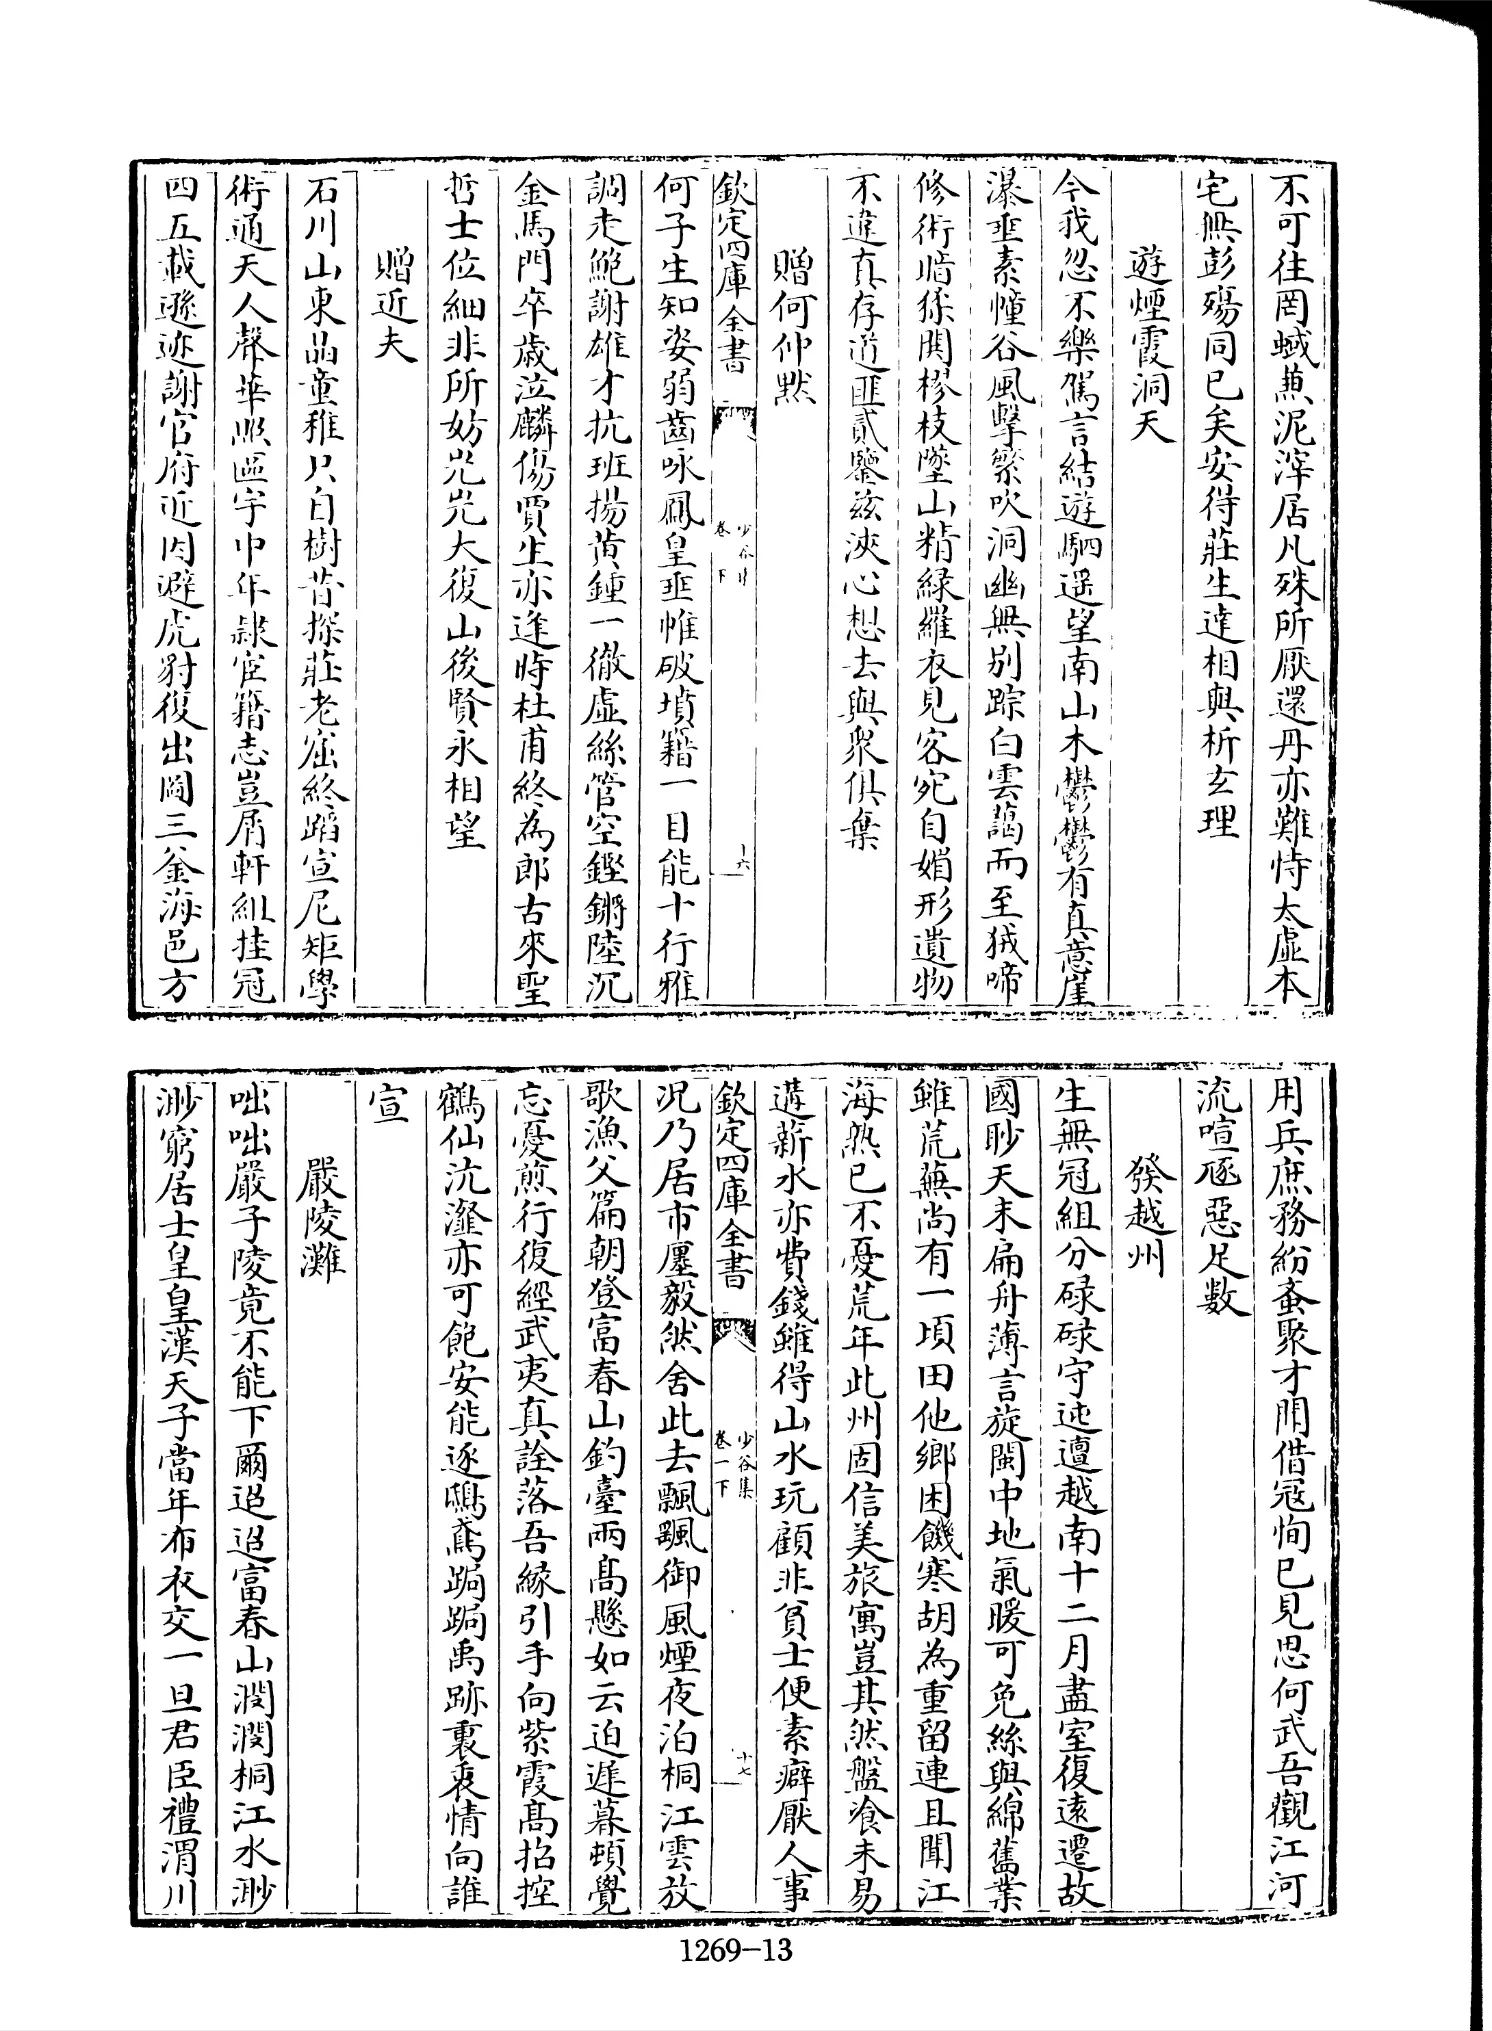 不可往罔蜮蕉泥滓居凡殊所厭還丹亦難恃太虛本
宅無彭殤同已矣安得莊生達相與析玄理
遊煙霞洞天
今我忽不樂駕言結遊駟遥望南山木鬱鬱有真意崖
瀑垂素幢谷風擊繁吹洞幽無别踪白雲藹而至狨啼
修術暗猱閧樛枝墜山精緑羅衣見客宛自媚形遺物
不違真存道匪貳鑒兹浹心想去與衆俱棄
贈何仲黙
欽定四庫全書
少谷集
卷一下
十六
何子生知姿弱齒咏鳳皇垂帷破墳籍一目能十行雅
調走鮑謝雄才抗班揚黄鍾一徹虛絲管空鏗鏘陸沉
金馬門卒歲泣麟傷賈生亦逢時杜甫終為郎古來聖
哲士位細非所妨光光大復山後賢永相望
贈近夫
石川山東品童稚只白樹昔探莊老窟終蹈宣尼矩學
術通天人聲華照區宇中年隷宦籍志豈屑軒組挂冠
四五載遜迹謝官府近因避虎豺復出圖三釜海邑方
用兵庶務紛蝥聚才閒借寇恂已見思何武吾觀江河
流喧豗惡足數
發越州
生無冠組分碌碌守迍邅越南十二月盡室復遠遷故
國眇天末扁舟薄言旋閩中地氣暖可免絲與綿舊業
雖荒蕪尚有一頃田他鄉困饑寒胡為重留連且聞江
海熟已不憂荒年此州固信美旅寓豈其然盤飡未易
遘薪水亦費錢雖得山水玩顧非貧士便素癖厭人事
欽定四庫全書
少谷集
卷一下
十七
况乃居市廛毅然舍此去飄飄御風煙夜泊桐江雲放
歌漁父篇朝登富春山釣臺兩髙懸如云迫遲暮頓覺
忘憂煎行復經武夷真詮落吾縁引手向紫霞髙招控
鶴仙沆瀣亦可飽安能逐鴟鳶跼跼禹跡裏哀情向誰
宣
嚴陵灘
咄咄嚴子陵竟不能下爾迢迢富春山濶濶桐江水渺
渺窮居士皇皇漢天子當年布衣交一旦君臣禮渭川
1269-13